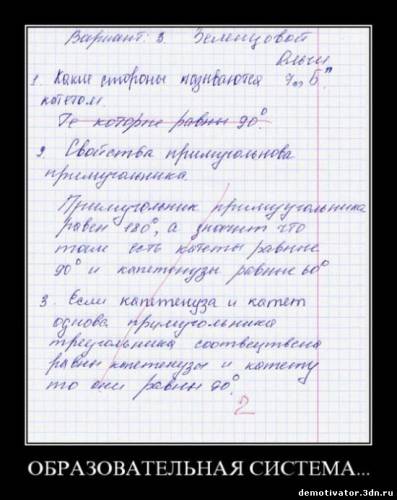 Вариант: 3. Земенцовой
Ольги
1. Какие стороны называются 7 "Б"
кототом.
Те которые равны 90°.
2. Свойства примугольнова
примугольника
Примугольник примуугольника
равен 180°, а значит что
там есть катеты равние
90° и капетенузы равние 60°
3. Если капетенуза и катет
однова примугольника
треугольника соотвецтвена
равны капетенузы и катету
то они равны 90°.
2
ОБРАЗОВАТЕЛЬНАЯ СИСТЕМА...
demotivator.3dn.ru